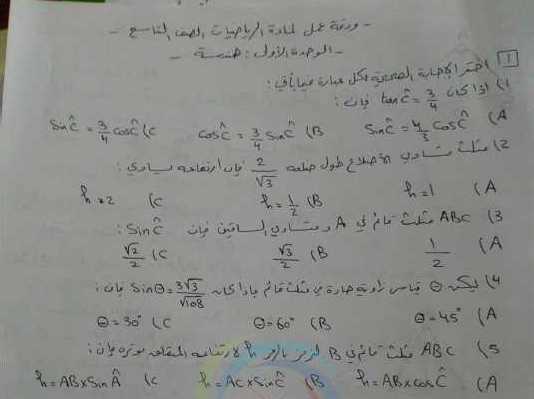 - ورقة عمل لمادة الرياضيات الصف التاسع -
- الوحدة الأولى: هندسة -
1 اختر الإجابة الصحيحة لكل عبارة فيما يأتي:
1) إذا كان tan Ĉ = 3/4 فإن:
A) Sin Ĉ = 4/3 cos Ĉ B) cos Ĉ = 3/4 Sin Ĉ C) Sin Ĉ = 3/4 cos Ĉ
2) مثلث متساوي الأضلاع طول ضلعه 2/√3 فإن ارتفاعه يساوي:
A) h = 1 B) h = 1/2 C) h = 2
3) ABC مثلث قائم في A ومتساوي الساقين فإن Sin Ĉ:
A) 1/2 B) √3/2 C) √2/2
4) ليكن θ قياس زاوية حادة في مثلث قائم فإذا كان Sin θ = 3√3/√108 فإن:
A) θ = 45° B) θ = 60° C) θ = 30°
5) ABC مثلث قائم في B لنرمز بالرمز h لارتفاعه المتعلق بوتره فإن:
A) h = AB × cos Ĉ B) h = AC × Sin Ĉ C) h = AB × Sin Â